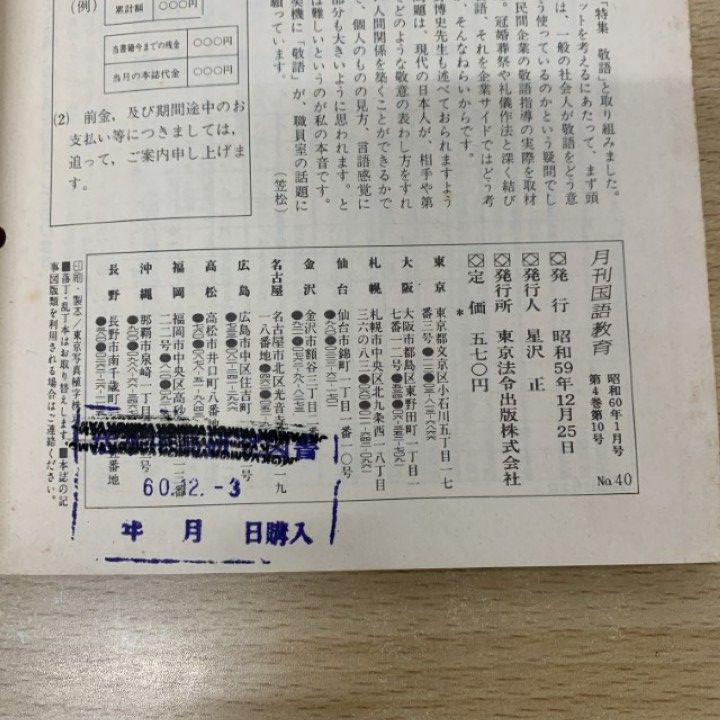 「特集 敬語」と取り組みました。
ットを考えるにあたって、まず頭
は、一般の社会人が敬語をどう意
う使っているのかという疑問でし
民間企業の敬語指導の実際を取材
。冠婚葬祭や礼儀作法と深く結び
語、それを企業サイドではどう考
、そんなねらいからです。
博史先生も述べておられますよう
題は、現代の日本人が、相手や第
てどのような敬意の表わし方をすれ
人間関係を築くことができるかで
、個人のものの見方、言語感覚に
部分も大きいように思われます。と
は難しいというのが私の本音です。
契機に「敬語」が、職員室の話題に
願っています。
(笠松)
(例)
累計額 ○○○円
当書籍今までの残金 ○○○円
当月の本誌代金 ○○○円
(2) 前金,及び期間途中のお
支払い等につきましては,
追って,ご案内申し上げま
す。
月刊国語教育
昭和60年1月号
第4巻第10号
No.40
発行 昭和59年12月25日
発行人 星沢 正
発行所 東京法令出版株式会社
定価 五七〇円
東京 東京都文京区小石川五丁目一七
番三号
大阪 大阪市都島区東野田町一丁目一
七番一二号
札幌 札幌市中央区北九条西一八丁目
三六の八三
仙台 仙台市錦町一丁目一番一〇号
金沢 金沢市額谷三丁目
名古屋 名古屋市北区光音寺
広島 広島市中区住吉町
高松 高松市井口町八番地
福岡 福岡市中央区高砂
沖縄 那覇市泉崎一丁目
長野 長野市南千歳町
印刷・製本/東京写真植字株
■落丁・乱丁本はお取り替えします。■本誌の記
事図版類を利用される場合はご連絡ください。
60.12.-3
年 月 日購入